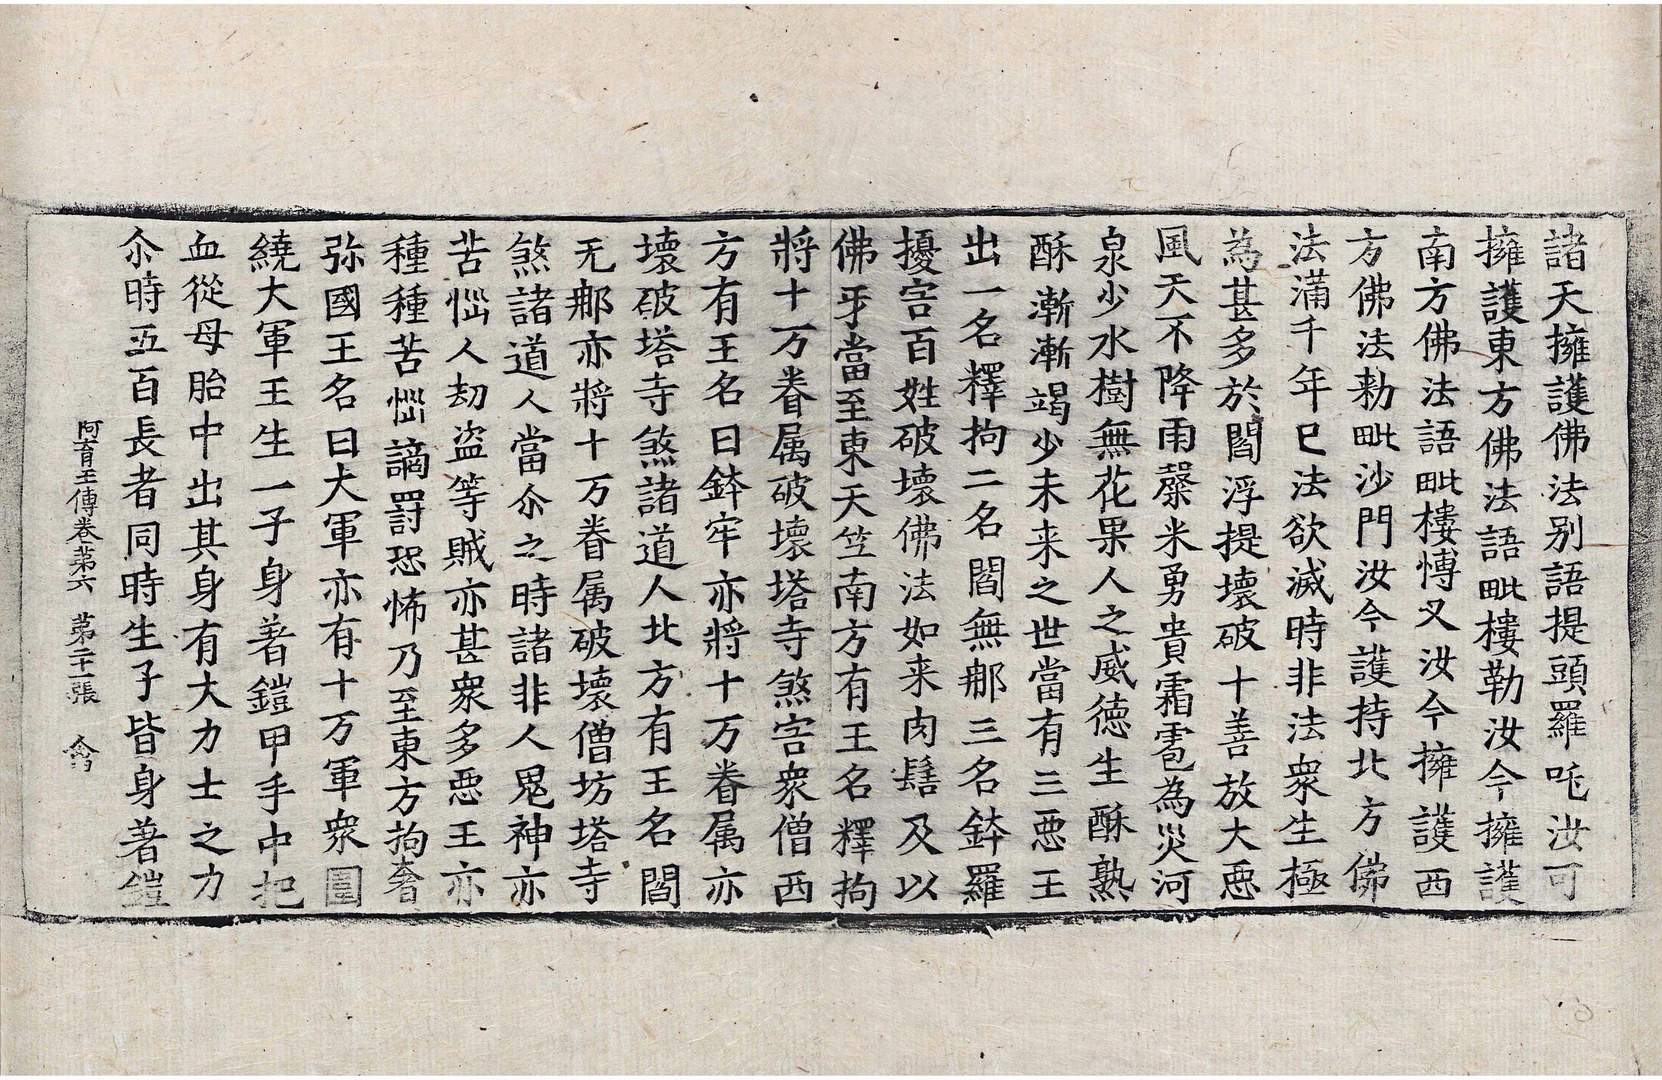 諸天擁護佛法別語提頭羅吒汝可
擁護東方佛法語毗樓勒汝今擁護
南方佛法語毗樓愽叉汝今擁護西
方佛法勑毗沙門汝今護持北方佛
法滿千年已法欲滅時非法衆生極
為甚多於閻浮提壞破十善放大惡
風天不降雨糳米勇貴霜雹為災河
泉少水樹無花果人之威德生酥熟
酥漸漸竭少未来之世當有三惡王
出一名釋拘二名閻無㖠三名鉢羅
擾害百姓破壞佛法如来肉髻及以
佛牙當至東天竺南方有王名釋拘
將十万眷属破壞塔寺煞害衆僧西
方有王名曰鉢牢亦將十万眷属亦
壞破塔寺煞諸道人北方有王名閻
无㖠亦將十万眷属破壞僧坊塔寺
煞諸道人當尒之時諸非人鬼神亦
苦惱人劫盜等賊亦甚衆多惡王亦
種種苦惱謫罰恐怖乃至東方拘奢
弥國王名曰大軍亦有十万軍衆圍
繞大軍王生一子身著鎧甲手中把
血從母胎中出其身有大力士之力
尒時五百長者同時生子皆身著鎧
阿育王傳卷第六　第二十一張